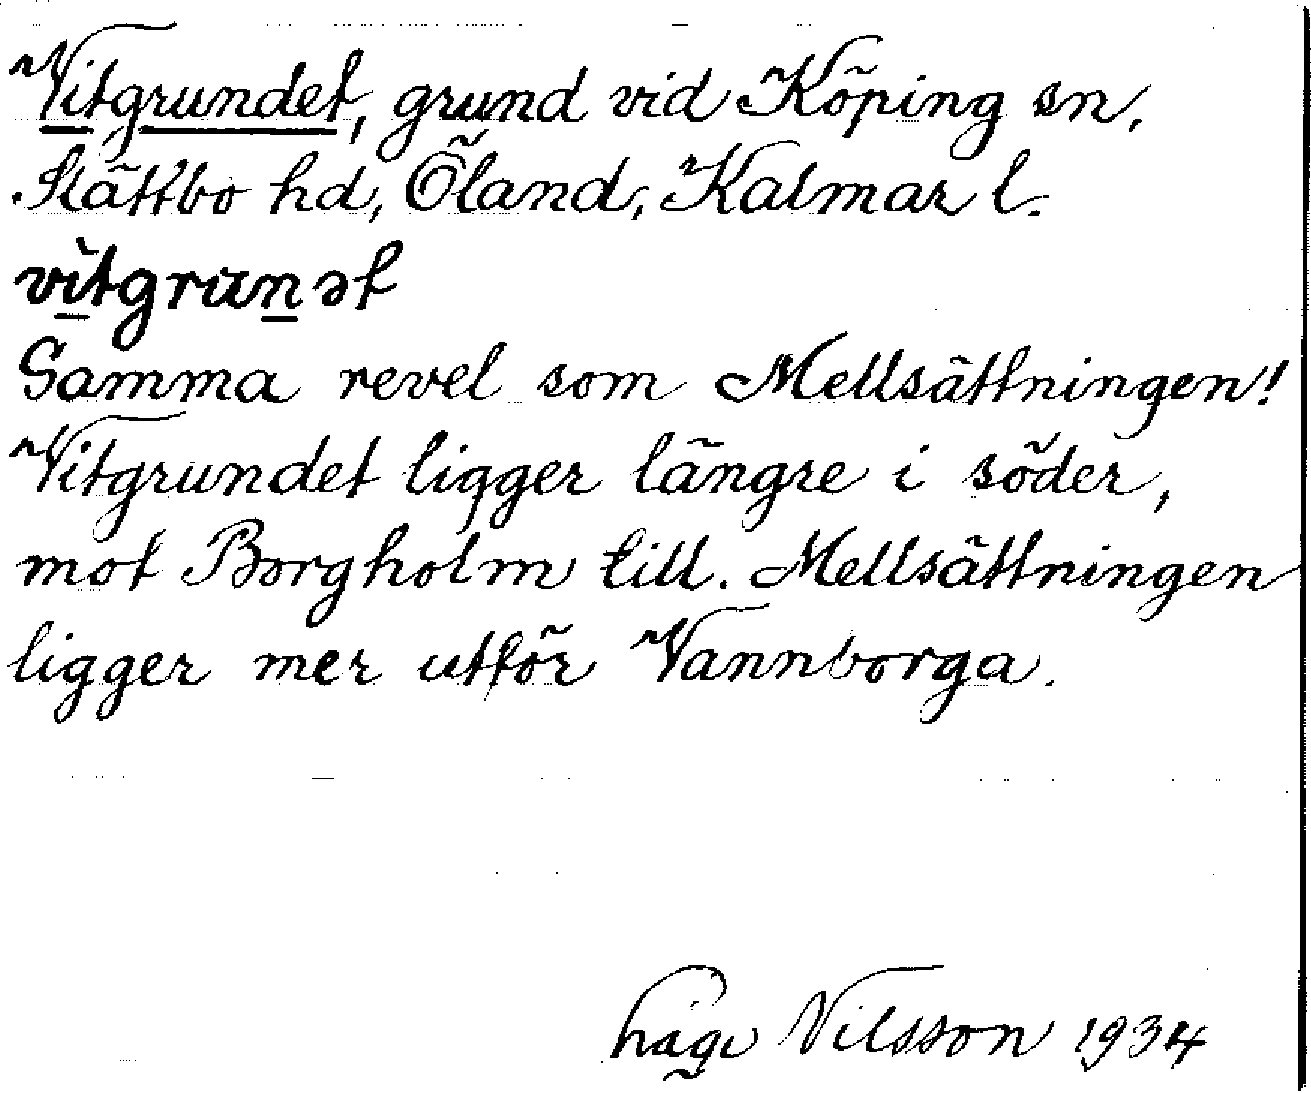 Vitgrundet, grund vid Köping sn,
Slättbo hd, Öland, Kalmar l.
vìtgrunət
Samma revel som Mellsättningen!
Vitgrundet ligger längre i söder,
mot Borgholm till. Mellsättningen
ligger mer utför Vannborga.
Nilsson 1934